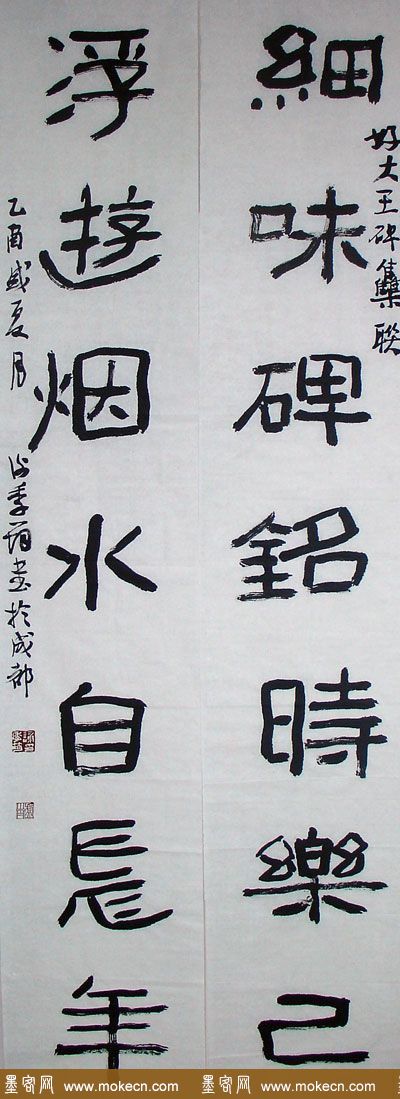 細味碑銘時樂己
好大王碑集聯
浮遊烟水自長年
乙酉盛夏月
季
書於成都
墨客网 www.mokecn.com 墨客网 www.mokecn.com